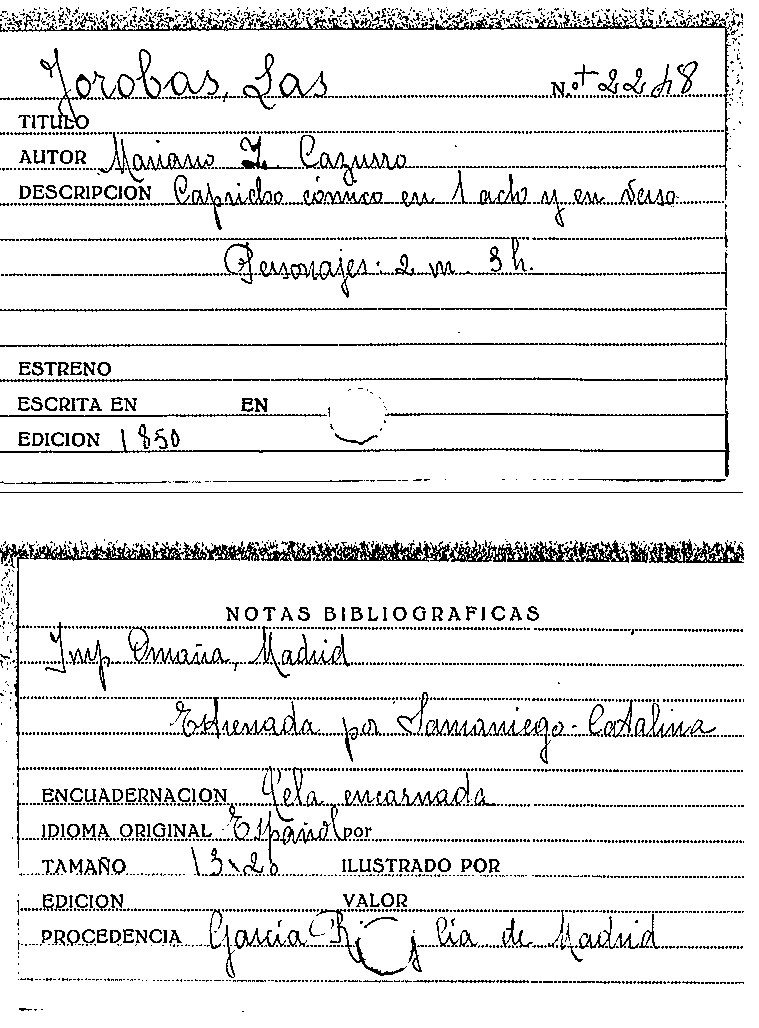 Jorobas, Las N.º + 2248
TITULO
AUTOR Mariano Z. Cazurro
DESCRIPCION Capricho cómico en 1 acto y en verso
Personajes: 2 m. 3 h.
ESTRENO
ESCRITA EN EN
EDICION 1850
NOTAS BIBLIOGRAFICAS
Imp Omaña, Madrid
Estrenada por Samaniego-Catalina
ENCUADERNACION Tela encarnada
IDIOMA ORIGINAL Español por
TAMAÑO 13x20 ILUSTRADO POR
EDICION VALOR
PROCEDENCIA García Ri lía de Madrid